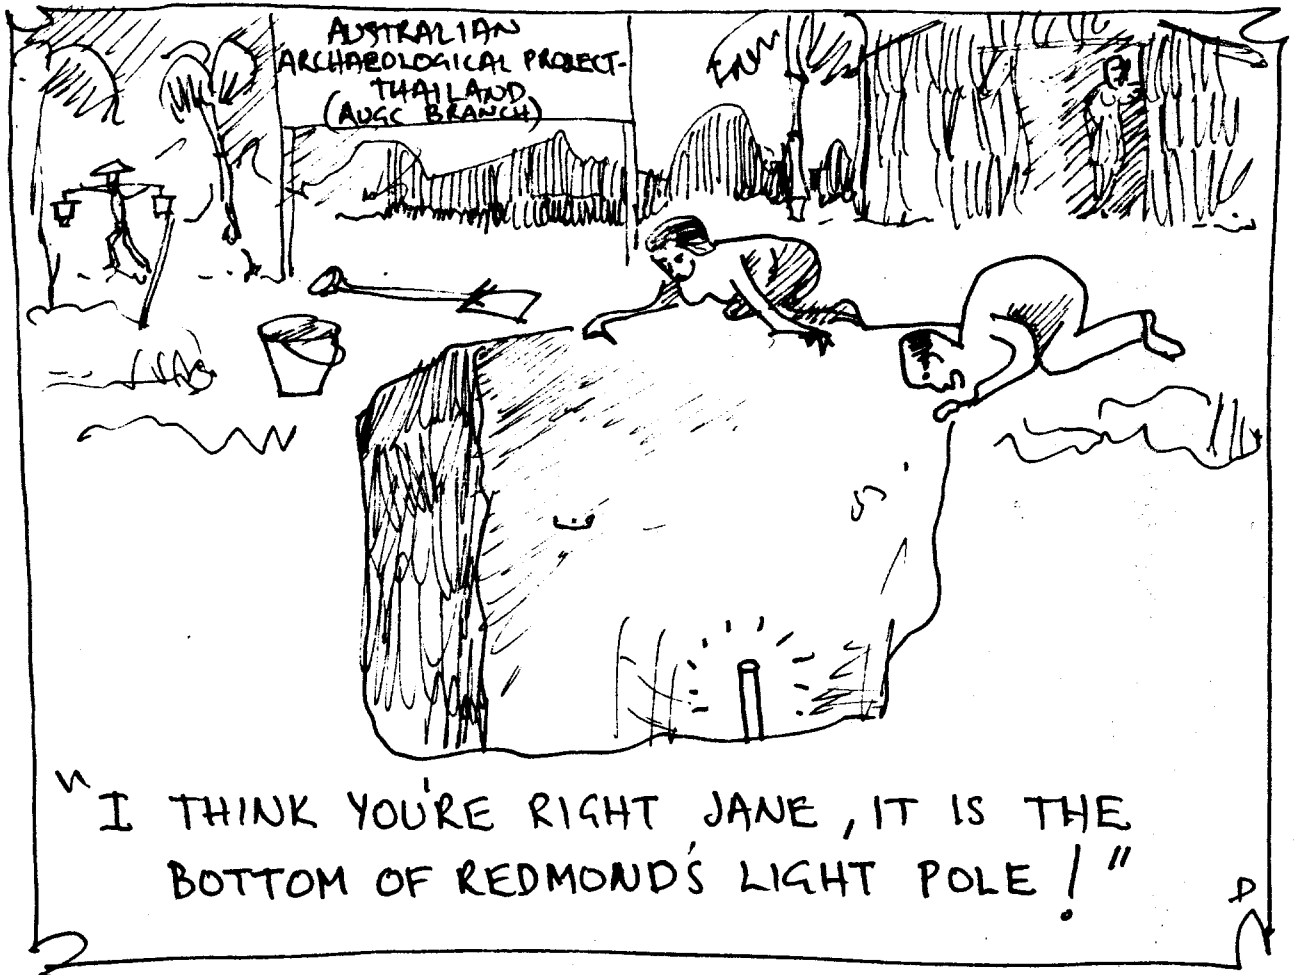 AUSTRALIAN
ARCHAEOLOGICAL PROJECT-
THAILAND
(AUGC BRANCH)
"I THINK YOU'RE RIGHT JANE, IT IS THE
BOTTOM OF REDMOND'S LIGHT POLE!"